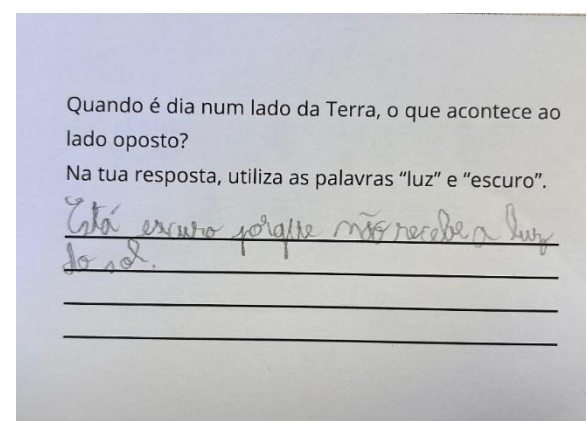 Quando é dia num lado da Terra, o que acontece ao
lado oposto?
Na tua resposta, utiliza as palavras “luz” e “escuro”.
Está escuro porque não recebe a luz
do sol.